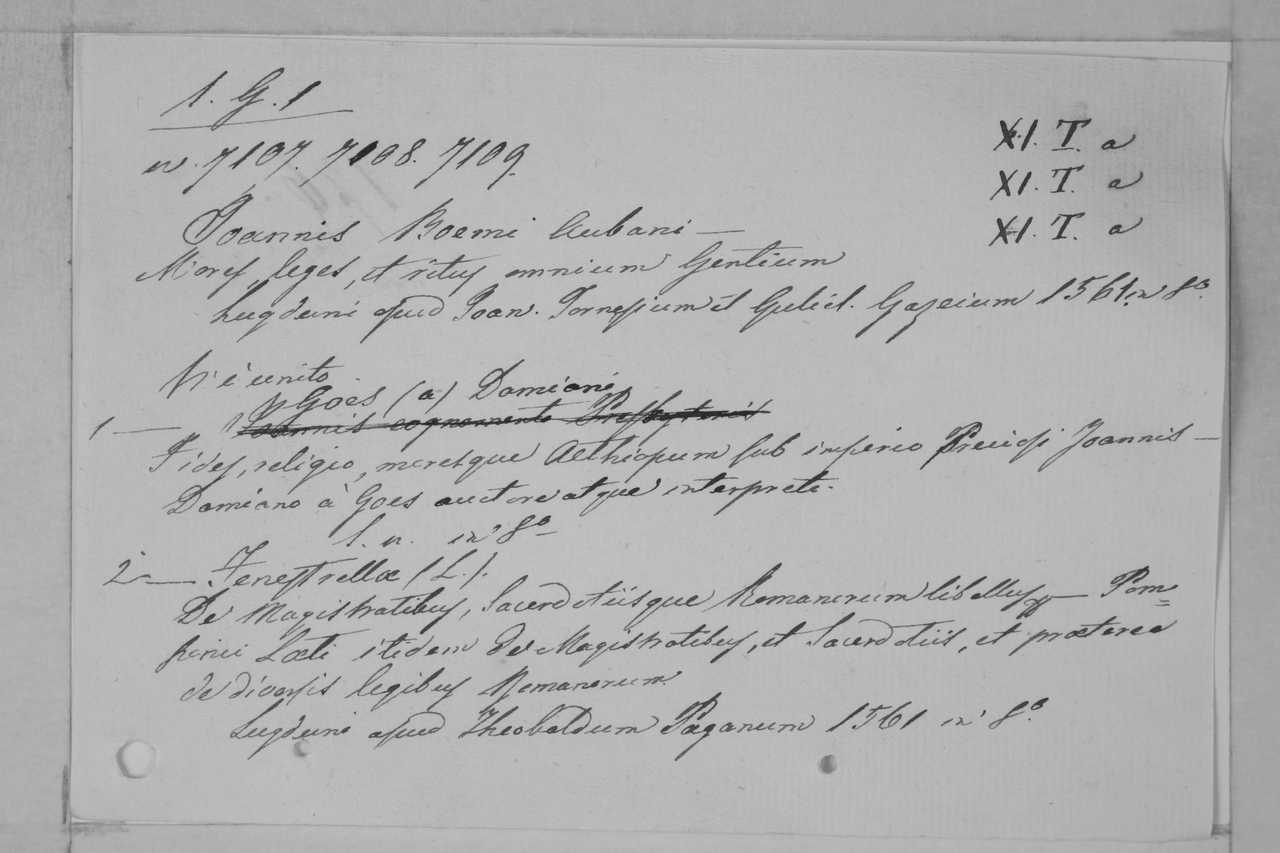 1. G. 1
n. 7107. 7108. 7109.
XI. T. a
XI. T. a
XI. T. a
Joannis Boemi Aubani —
Mores, leges, et ritus omnium Gentium
Lugduni apud Joan. Tornesium et Guliel. Gazeium 1561. in 8º.
Vi è unito
Goes (a) Damiani
1 — Joannis cognomento Presbyteris
Fides, religio, moresque Aethiopum sub imperio Preciosi Joannis —
Damiano à Goes auctore atque interprete.
S. n. in 8º
2 — Fenestrellae (L.).
De Magistratibus, Sacerdotiisque Romanorum libellus — Pom=
ponii Laeti itidem de Magistratibus, et Sacerdotiis, et praeterea
de diversis legibus Romanorum
Lugduni apud Theobaldum Paganum 1561 in 8º.